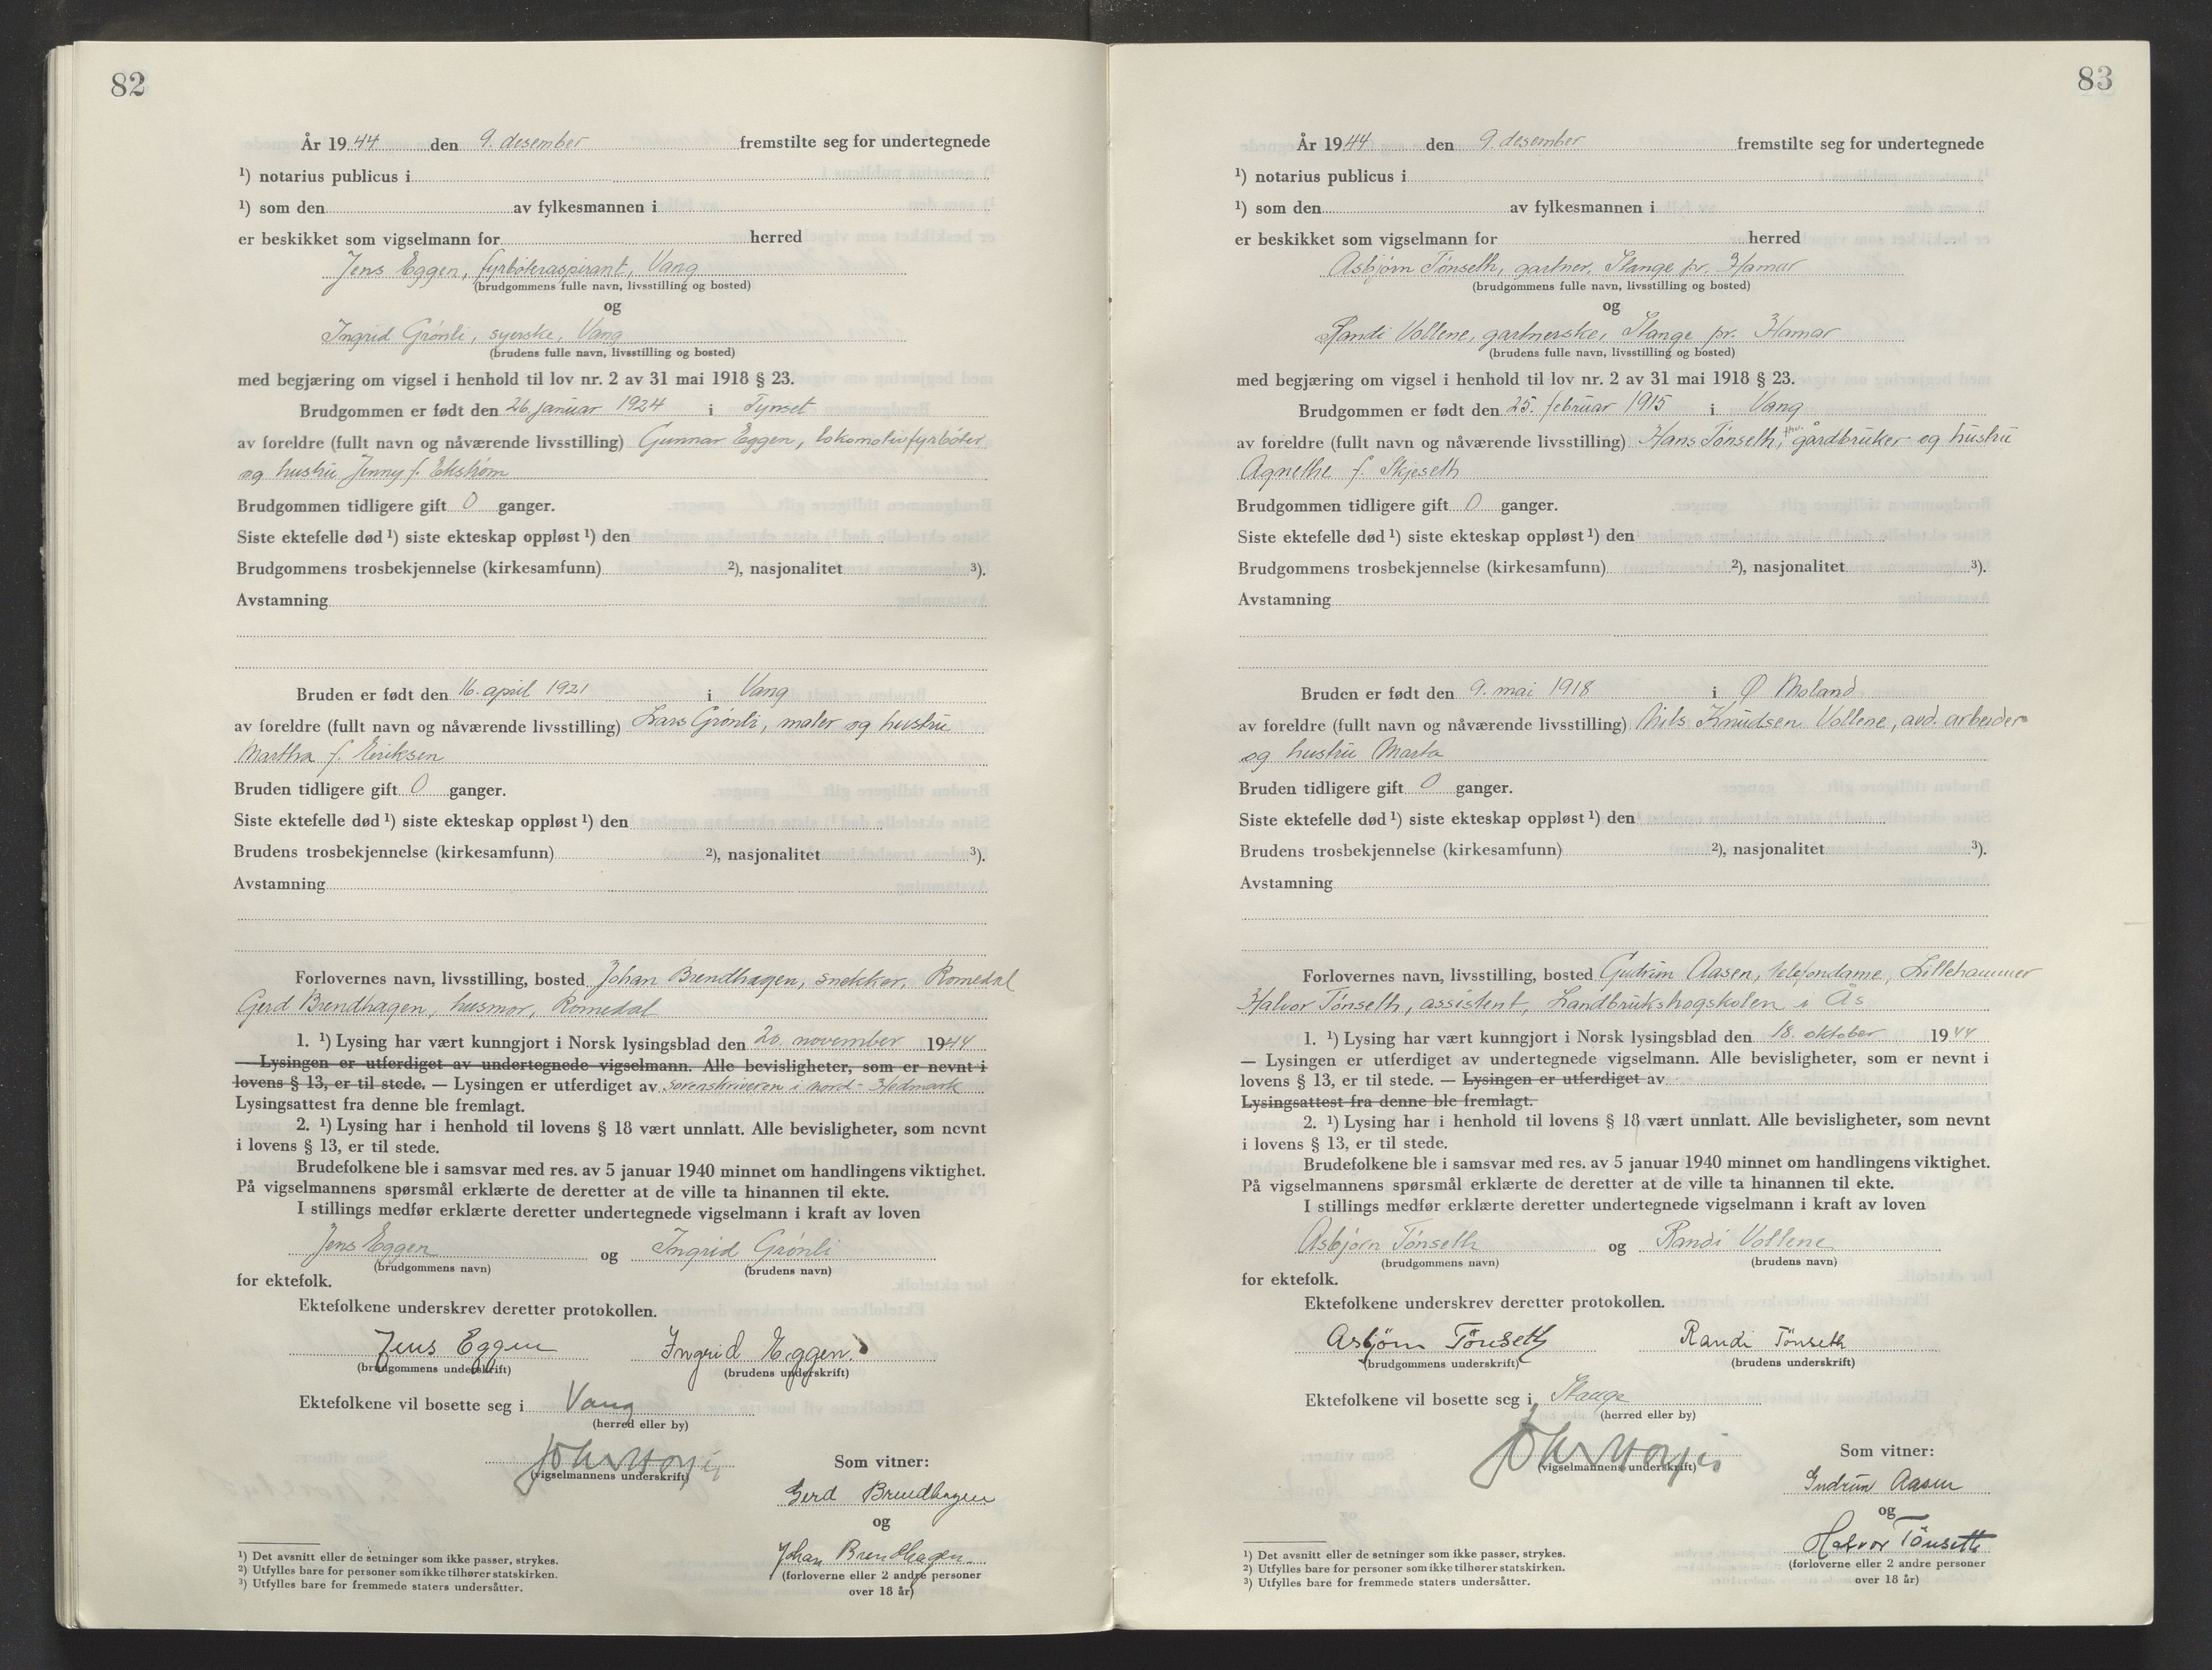 82
År 1944 den 9. desember fremstilte seg for undertegnede
¹) notarius publicus i
¹) som den av fylkesmannen i
er beskikket som vigselmann for herred
Jens Eggen, fyrbøteraspirant, Vang
(brudgommens fulle navn, livsstilling og bosted)
og
Ingrid Grønli, syerske, Vang
(brudens fulle navn, livsstilling og bosted)
med begjæring om vigsel i henhold til lov nr. 2 av 31 mai 1918 § 23.
Brudgommen er født den 26. januar 1924 i Tynset
av foreldre (fullt navn og nåværende livsstilling) Gunnar Eggen, lokomotivfyrbøter
og hustru Jenny f. Ekstrøm
Brudgommen tidligere gift 0 ganger.
Siste ektefelle død ¹) siste ekteskap oppløst ¹) den
Brudgommens trosbekjennelse (kirkesamfunn) ²), nasjonalitet ³).
Avstamning
Bruden er født den 16. april 1921 i Vang
av foreldre (fullt navn og nåværende livsstilling) Lars Grønli, maler og hustru
Martha f. Eriksen
Bruden tidligere gift 0 ganger.
Siste ektefelle død ¹) siste ekteskap oppløst ¹) den
Brudens trosbekjennelse (kirkesamfunn) ²), nasjonalitet ³).
Avstamning
Forlovernes navn, livsstilling, bosted Johan Brendhagen, snekker, Romedal
Gerd Brendhagen, husmor, Romedal
1. ¹) Lysing har vært kunngjort i Norsk lysingsblad den 20. november 1944
— Lysingen er utferdiget av undertegnede vigselmann. Alle bevisligheter, som er nevnt i
lovens § 13, er til stede. — Lysingen er utferdiget av sorenskriveren i Nord-Hedmark
Lysingsattest fra denne ble fremlagt.
2. ¹) Lysing har i henhold til lovens § 18 vært unnlatt. Alle bevisligheter, som nevnt
i lovens § 13, er til stede.
Brudefolkene ble i samsvar med res. av 5 januar 1940 minnet om handlingens viktighet.
På vigselmannens spørsmål erklærte de deretter at de ville ta hinannen til ekte.
I stillings medfør erklærte deretter undertegnede vigselmann i kraft av loven
Jens Eggen og Ingrid Grønli
(brudgommens navn) (brudens navn)
for ektefolk.
Ektefolkene underskrev deretter protokollen.
Jens Eggen Ingrid Eggen
(brudgommens underskrift) (brudens underskrift)
Ektefolkene vil bosette seg i Vang
(herred eller by)
(vigselmannens underskrift)
Som vitner:
Gerd Brendhagen
og
Johan Brendhagen
(forloverne eller 2 andre personer
over 18 år)
¹) Det avsnitt eller de setninger som ikke passer, strykes.
²) Utfylles bare for personer som ikke tilhører statskirken.
³) Utfylles bare for fremmede staters undersåtter.
83
År 1944 den 9. desember fremstilte seg for undertegnede
¹) notarius publicus i
¹) som den av fylkesmannen i
er beskikket som vigselmann for herred
Asbjørn Tønseth, gartner, Stange pr. Hamar
(brudgommens fulle navn, livsstilling og bosted)
og
Randi Vollene, gartnerske, Stange pr. Hamar
(brudens fulle navn, livsstilling og bosted)
med begjæring om vigsel i henhold til lov nr. 2 av 31 mai 1918 § 23.
Brudgommen er født den 25. februar 1915 i Vang
av foreldre (fullt navn og nåværende livsstilling) Hans Tønseth, fhv. gårdbruker og hustru
Agnethe f. Skjeseth
Brudgommen tidligere gift 0 ganger.
Siste ektefelle død ¹) siste ekteskap oppløst ¹) den
Brudgommens trosbekjennelse (kirkesamfunn) ²), nasjonalitet ³).
Avstamning
Bruden er født den 9. mai 1918 i Ø Moland
av foreldre (fullt navn og nåværende livsstilling) Nils Knudsen Vollene, avd. arbeider
og hustru Marta
Bruden tidligere gift 0 ganger.
Siste ektefelle død ¹) siste ekteskap oppløst ¹) den
Brudens trosbekjennelse (kirkesamfunn) ²), nasjonalitet ³).
Avstamning
Forlovernes navn, livsstilling, bosted Gudrun Aasen, telefondame, Lillehammer
Halvor Tønseth, assistent, Landbrukshøgskolen i Ås
1. ¹) Lysing har vært kunngjort i Norsk lysingsblad den 18. oktober 1944
— Lysingen er utferdiget av undertegnede vigselmann. Alle bevisligheter, som er nevnt i
lovens § 13, er til stede. — Lysingen er utferdiget av
Lysingsattest fra denne ble fremlagt.
2. ¹) Lysing har i henhold til lovens § 18 vært unnlatt. Alle bevisligheter, som nevnt
i lovens § 13, er til stede.
Brudefolkene ble i samsvar med res. av 5 januar 1940 minnet om handlingens viktighet.
På vigselmannens spørsmål erklærte de deretter at de ville ta hinannen til ekte.
I stillings medfør erklærte deretter undertegnede vigselmann i kraft av loven
Asbjørn Tønseth og Randi Vollene
(brudgommens navn) (brudens navn)
for ektefolk.
Ektefolkene underskrev deretter protokollen.
Asbjörn Tönseth Randi Tönseth
(brudgommens underskrift) (brudens underskrift)
Ektefolkene vil bosette seg i Stange
(herred eller by)
(vigselmannens underskrift)
Som vitner:
Gudrun Aasen
og
Halvor Tönseth
(forloverne eller 2 andre personer
over 18 år)
¹) Det avsnitt eller de setninger som ikke passer, strykes.
²) Utfylles bare for personer som ikke tilhører statskirken.
³) Utfylles bare for fremmede staters undersåtter.